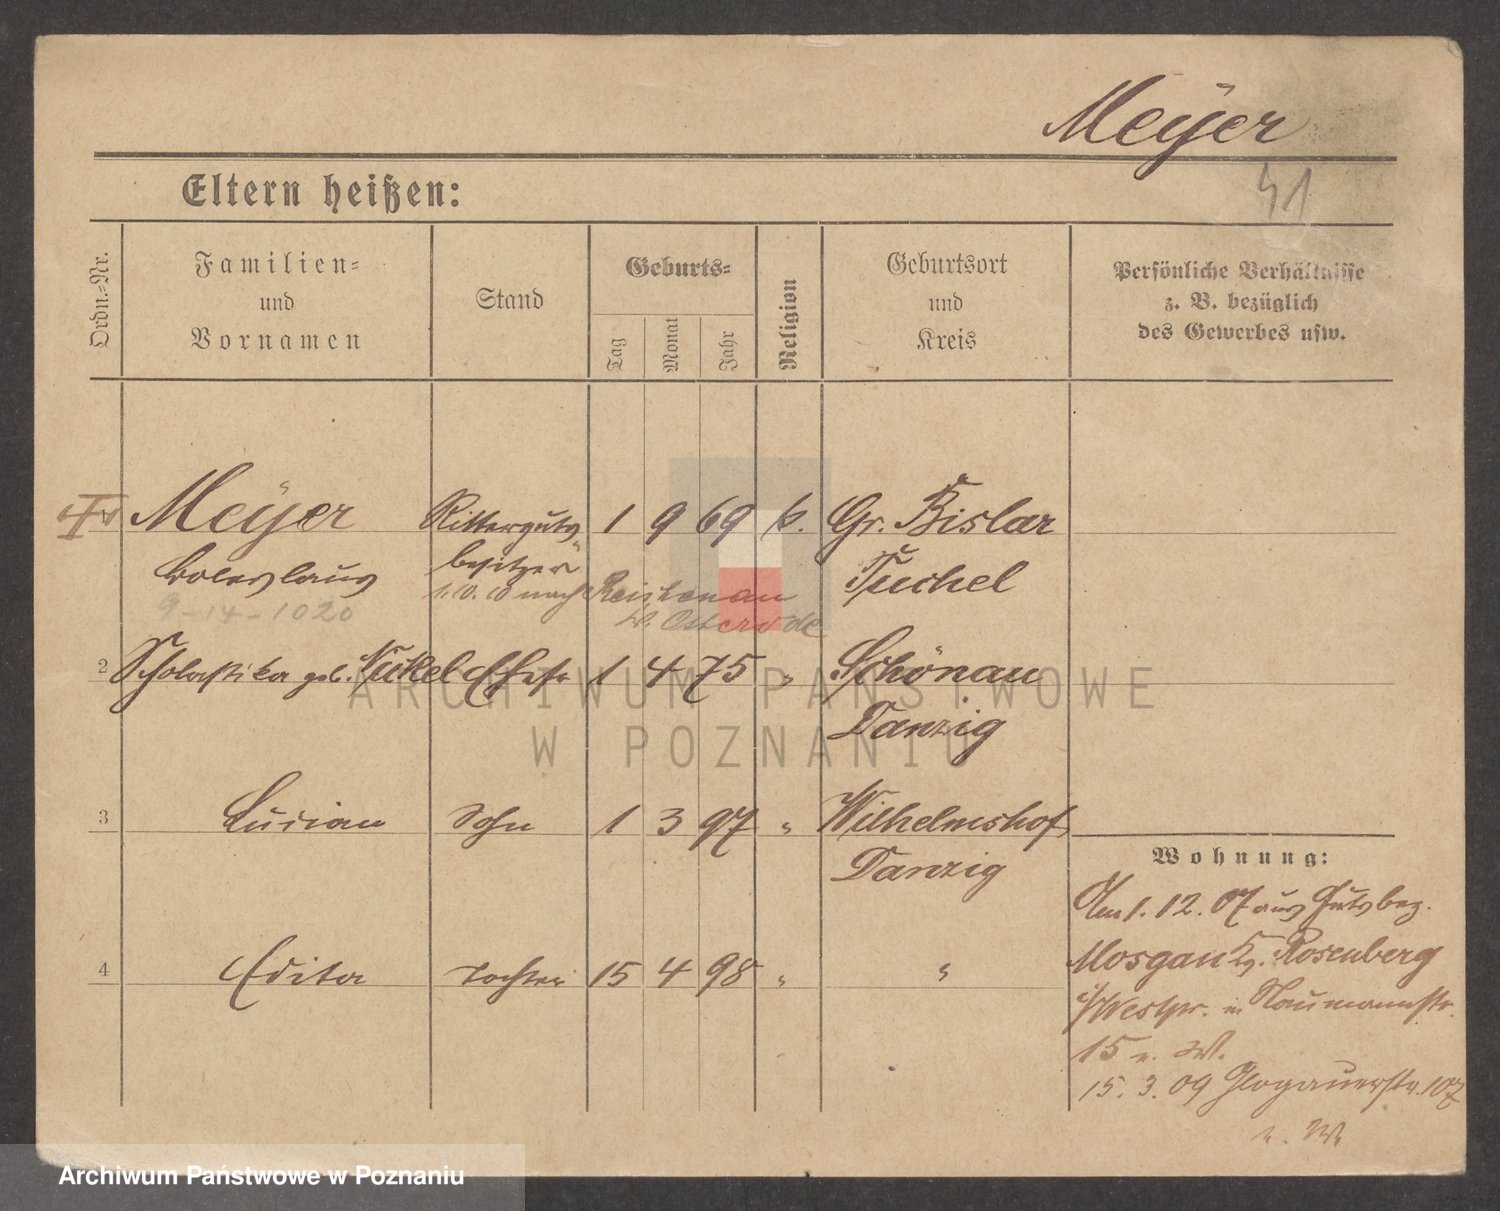 Meÿer
41
Eltern heißen:
Ordn.-Nr.
Familien-
und
Vornamen
Stand
Geburts-
Tag
Monat
Jahr
Religion
Geburtsort
und
Kreis
Persönliche Verhältnisse
z. B. bezüglich
des Gewerbes usw.
Meÿer Ritterguts 1 9 69 k. Gr. Bislar
Boleslaus besitzer Tuchel
nach Reichenau
9-14-1020 Osterode
2 Scholastika geb. Nickel Ehefr 1 4 75 " Schönau
Danzig
3 Lucian Sohn 1 3 97 " Wilhelmshof
Danzig
Wohnung:
Am 1. 12. 07 aus Gutsbez.
4 Edita Tochter 15 4 98 " "
Mosgau Kr. Rosenberg
i/Westpr. in Naumannstr.
15 n. W.
15. 3. 09 Glogauerstr. 107
n. W.
ARCHIWUM PAŃSTWOWE
W POZNANIU
Archiwum Państwowe w Poznaniu